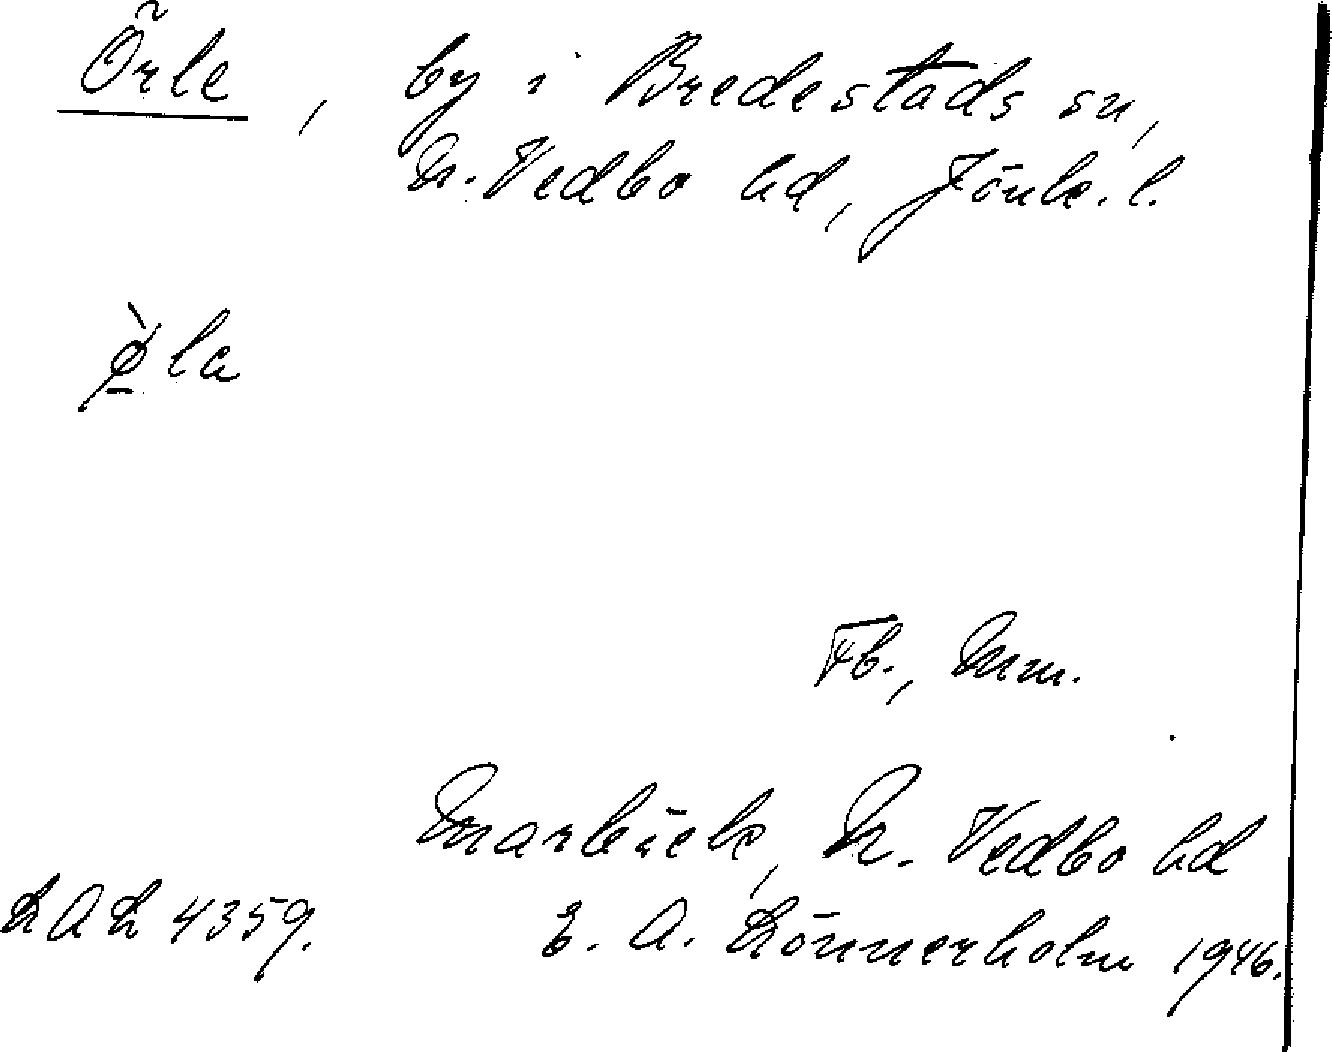 Örle, by i Bredestads sn,
N. Vedbo hd, Jönk. l.
ø̱̀la
Fb., Mm.
Marbäck, N. Vedbo hd
LAL 4359. E. A. Lönnerholm 1946.